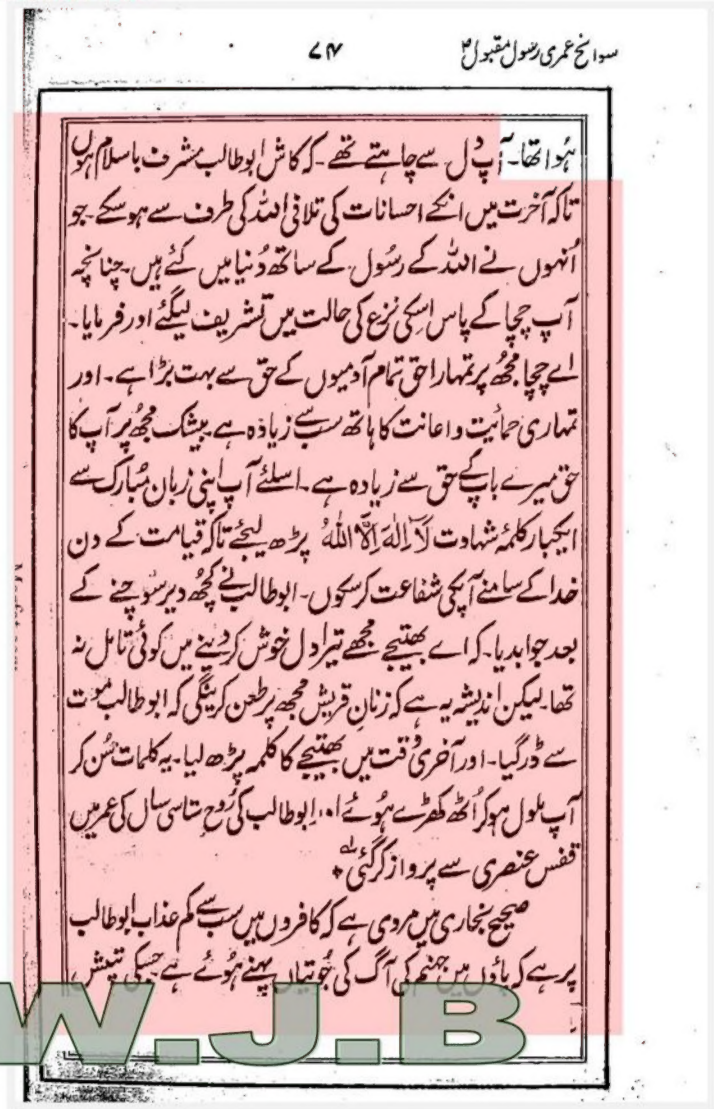 سوانح عمری رسول مقبولؐ ۷۴
ہُوا تھا۔ آپ دل سے چاہتے تھے۔ کہ کاش ابوطالب مشرف باسلام ہوں
تاکہ آخرت میں انکے احسانات کی تلافی اللہ کی طرف سے ہو سکے۔ جو
اُنہوں نے اللہ کے رسُول کے ساتھ دُنیا میں کئے ہیں۔ چنانچہ
آپ چچا کے پاس اسکی نزع کی حالت میں تشریف لیگئے اور فرمایا۔
اے چچا مجھ پر تمہارا حق تمام آدمیوں کے حق سے بہت بڑا ہے۔ اور
تمہاری حمائیت و اعانت کا ہاتھ سب سے زیادہ ہے۔ بیشک مجھ پر آپ کا
حق میرے باپ کے حق سے زیادہ ہے۔ اسلئے آپ اپنی زبان مُبارک سے
ایکبار کلمۂ شہادت لَآ اِلٰہَ اِلَّا اللہُ پڑھ لیجئے تاکہ قیامت کے دن
خدا کے سامنے آپکی شفاعت کر سکوں۔ ابوطالب نے کچھ دیر سوچنے کے
بعد جوابدیا۔ کہ اے بھتیجے مجھے تیرا دل خوش کر دینے میں کوئی تامل نہ
تھا۔ لیکن اندیشہ یہ ہے کہ زنانِ قریش مجھ پر طعن کرینگی کہ ابوطالب موت
سے ڈر گیا۔ اور آخری وقت میں بھتیجے کا کلمہ پڑھ لیا۔ یہ کلمات سُن کر
آپ ملول ہو کر اُٹھ کھڑے ہُوئے ابوطالب کی رُوح ستاسی سال کی عمر میں
قفس عنصری سے پرواز کر گئی
صحیح بخاری میں مروی ہے کہ کافروں میں سب سے کم عذاب ابوطالب
پر ہے کہ پاؤں میں جہنم کی آگ کی جُوتیاں پہنے ہُوئے ہے جسکی تپش
W.J.B